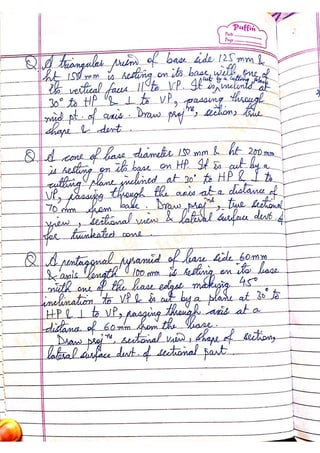 Puffin
Q A triangular prism of base side 125 mm &
ht 150 mm is resting on its base with one of
its vertical faces 11 to VP. It is cut by a cutting plane inclined at
30° to HP & ⊥ to VP, passing through
mid pt. of axis. Draw projⁿˢ, section, true
shape & devt.
Q A cone of base diameter 150 mm & ht 200 mm
is resting on its base on HP. It is cut by a
cutting plane inclined at 30° to HP & ⊥ to
VP, passing through the axis at a distance of
70 mm from base. Draw projⁿˢ, true sectional
view, sectional view & lateral surface devt. of
for trunkated cone.
Q A pentagonal pyramid of base side 60mm
& axis length 100 mm is resting on its base
with one of the base edges making 45°
inclination to VP & is cut by a plane at 30° to
HP & ⊥ to VP, passing through axis at a
distance of 60 mm from the base.
Draw projⁿˢ, sectional view, shape of section,
lateral surface devt. of sectional part.